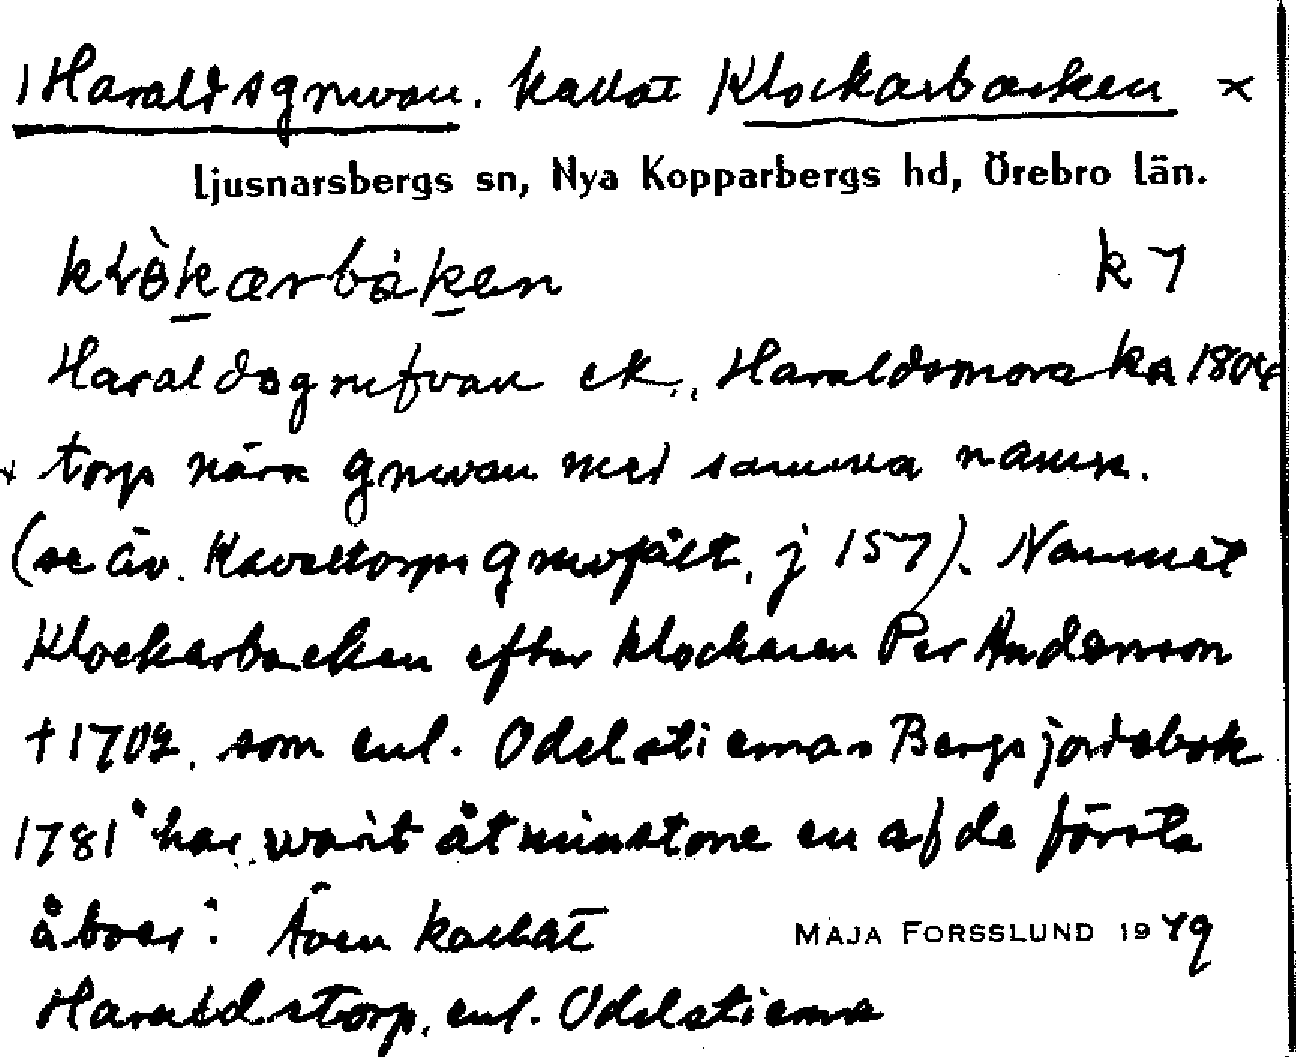 1 Haraldsgruvan. kallat Klockarbacken ×
Ljusnarsbergs sn, Nya Kopparbergs hd, Örebro län.
klòkærbàken k 7
Haraldsgrufvan ek., Haraldsmora ka 1804
× torp nära gruvan med samma namn.
(se äv. Kaveltorps gruvfält, j 157). Namnet
Klockarbacken efter klockaren Per Andersson
† 1702, som enl. Odelstiernas Bergsjordebok
1781 "har warit åtminstone en af de första
åboer". Även kallat
MAJA FORSSLUND 1949
Haraldstorp, enl. Odelstierna